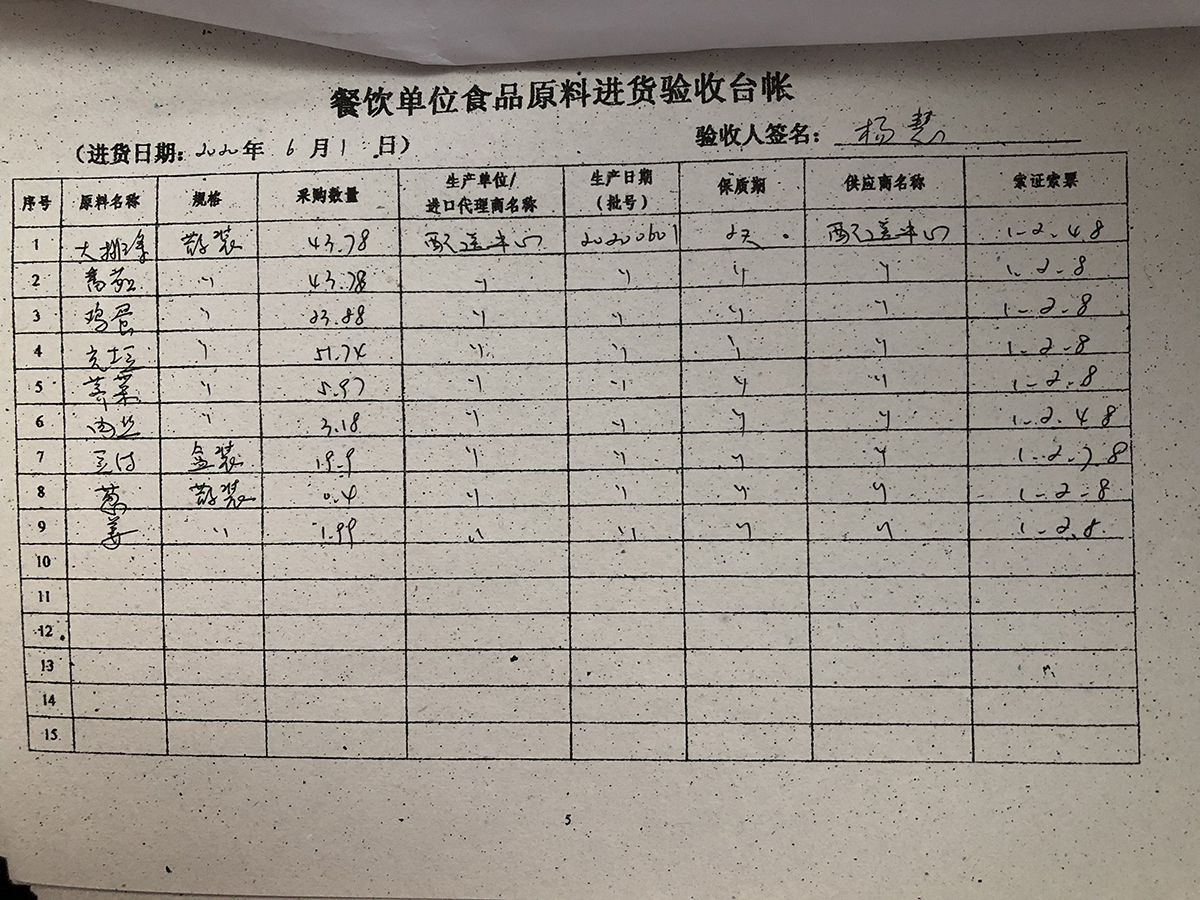 餐饮单位食品原料进货验收台帐
(进货日期: 2020年 6 月 1 日) 验收人签名: 杨慧
序号 原料名称 规格 采购数量 生产单位/进口代理商名称 生产日期(批号) 保质期 供应商名称 索证索票
1 大排 散装 43.78 配送中心 20200601 2天 配送中心 1-2-4.8
2 〃 43.78 〃 〃 〃 〃 1-2-8
3 鸡蛋 〃 23.88 〃 〃 〃 〃 1-2-8
4 〃 51.74 〃 〃 〃 〃 1-2-8
5 荠菜 〃 5.97 〃 〃 〃 〃 1-2-8
6 肉丝 〃 3.18 〃 〃 〃 〃 1-2.4.8
7 豆付 盒装 19.9 〃 〃 〃 〃 1-2-7.8
8 葱 散装 0.4 〃 〃 〃 〃 1-2-8
9 姜 〃 1.99 〃 〃 〃 〃 1-2.8
10
11
12
13
14
15
5